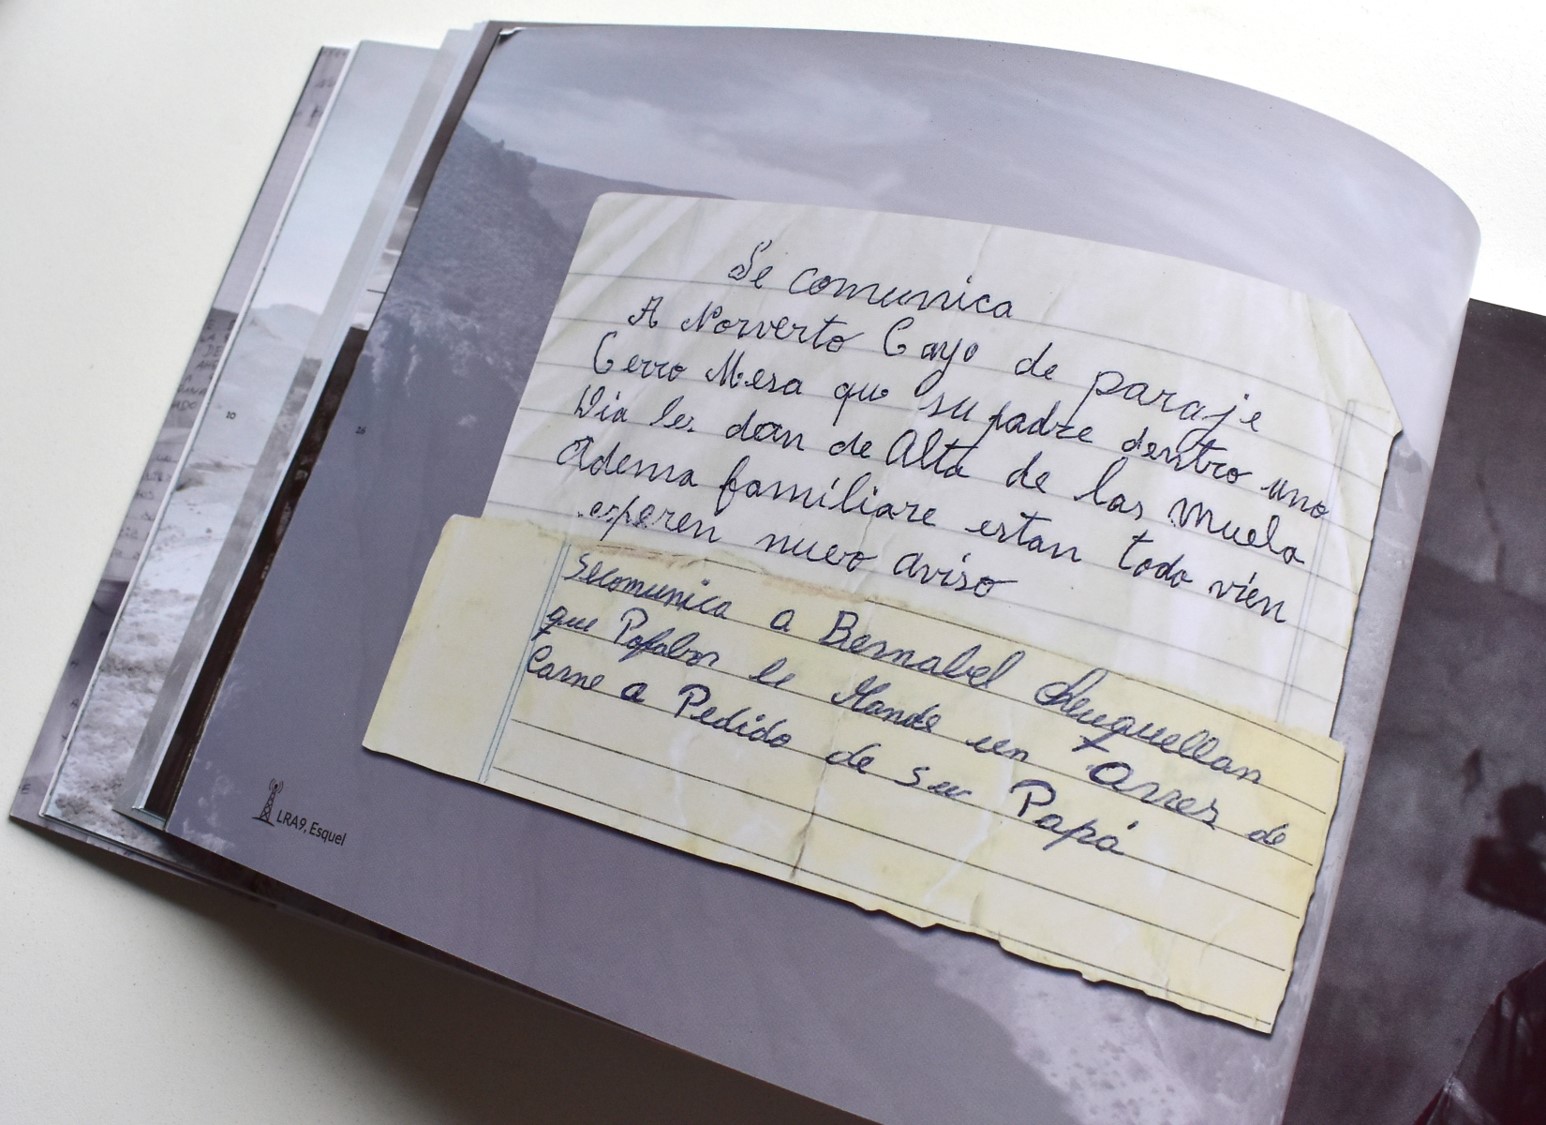 Se comunica
A Norverto Cayo de paraje
Cerro Mesa que su padre dentro uno
Dia les dan de Alta de las Muela
Adema familiare estan todo vien
esperen nuevo aviso
Secomunica a Bernabel
que Pofabor le Mande un
Carne a Pedido de su Papá
de
LRA9, Esquel
10
26